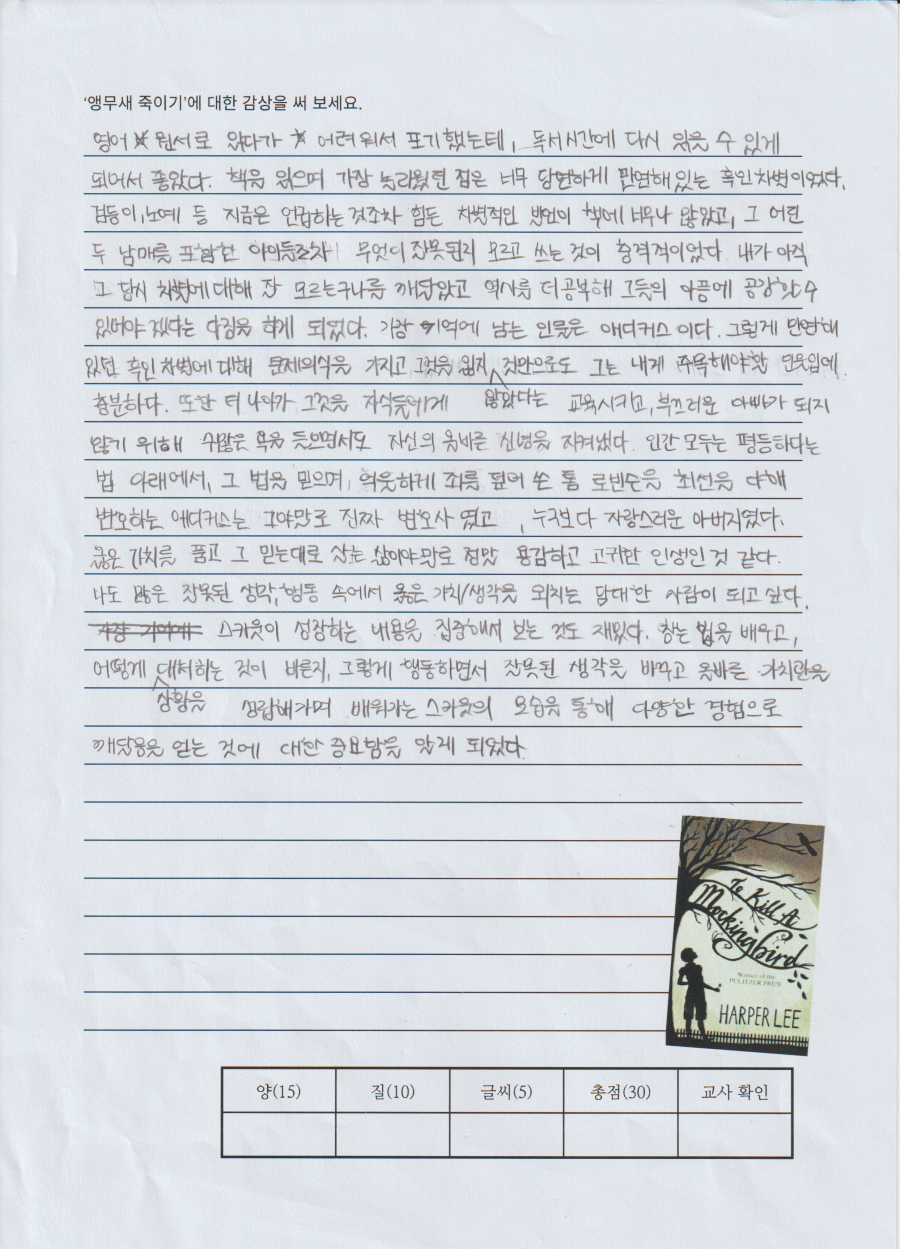 '앵무새 죽이기'에 대한 감상을 써 보세요.
영어 원서로 읽다가 어려워서 포기했는데, 독서시간에 다시 읽을 수 있게
되어서 좋았다. 책을 읽으며 가장 놀라웠던 점은 너무 당연하게 만연해있는 흑인차별이었다.
검둥이, 노예 등 지금은 언급하는 것조차 힘든 차별적인 발언이 책에 너무나 많았고, 그 어린
두 남매를 포함한 아이들조차 무엇이 잘못된지 모르고 쓰는 것이 충격적이었다. 내가 아직
그 당시 차별에 대해 잘 모르는구나를 깨달았고 역사를 더 공부해 그들의 아픔에 공감할 수
있어야겠다는 다짐을 하게 되었다. 가장 기억에 남는 인물은 애티커스이다. 그렇게 만연해
있던 흑인차별에 대해 문제의식을 가지고 그것을 잃지 것만으로도 그는 내게 주목해야할 인물임에
충분하다. 또한 더 나아가 그것을 자식들에게 않았다는 교육시키고, 부끄러운 아빠가 되지
않기 위해 수많은 욕을 들으면서도 자신의 올바른 신념을 지켜냈다. 인간 모두는 평등하다는
법 아래에서, 그 법을 믿으며, 억울하게 죄를 뒤집어 쓴 톰 로빈슨을 최선을 다해
변호하는 애티커스는 그야말로 진짜 변호사였고, 누구보다 자랑스러운 아버지였다.
옳은 가치를 품고 그 믿는대로 사는 삶이야말로 정말 용감하고 고귀한 인생인 것 같다.
나도 많은 잘못된 생각, 행동 속에서 옳은 가치/생각을 외치는 담대한 사람이 되고 싶다.
스카웃이 성장하는 내용을 집중해서 보는 것도 재밌다. 참는 법을 배우고,
어떻게 대처하는 것이 바른지, 그렇게 행동하면서 잘못된 생각을 바꾸고 올바른 가치관을
상황을 성립해가며 배워가는 스카웃의 모습을 통해 다양한 경험으로
깨달음을 얻는 것에 대한 중요함을 알게 되었다.
To Kill A
Mockingbird
Winner of the
PULITZER PRIZE
HARPER LEE
양(15) 질(10) 글씨(5) 총점(30) 교사 확인